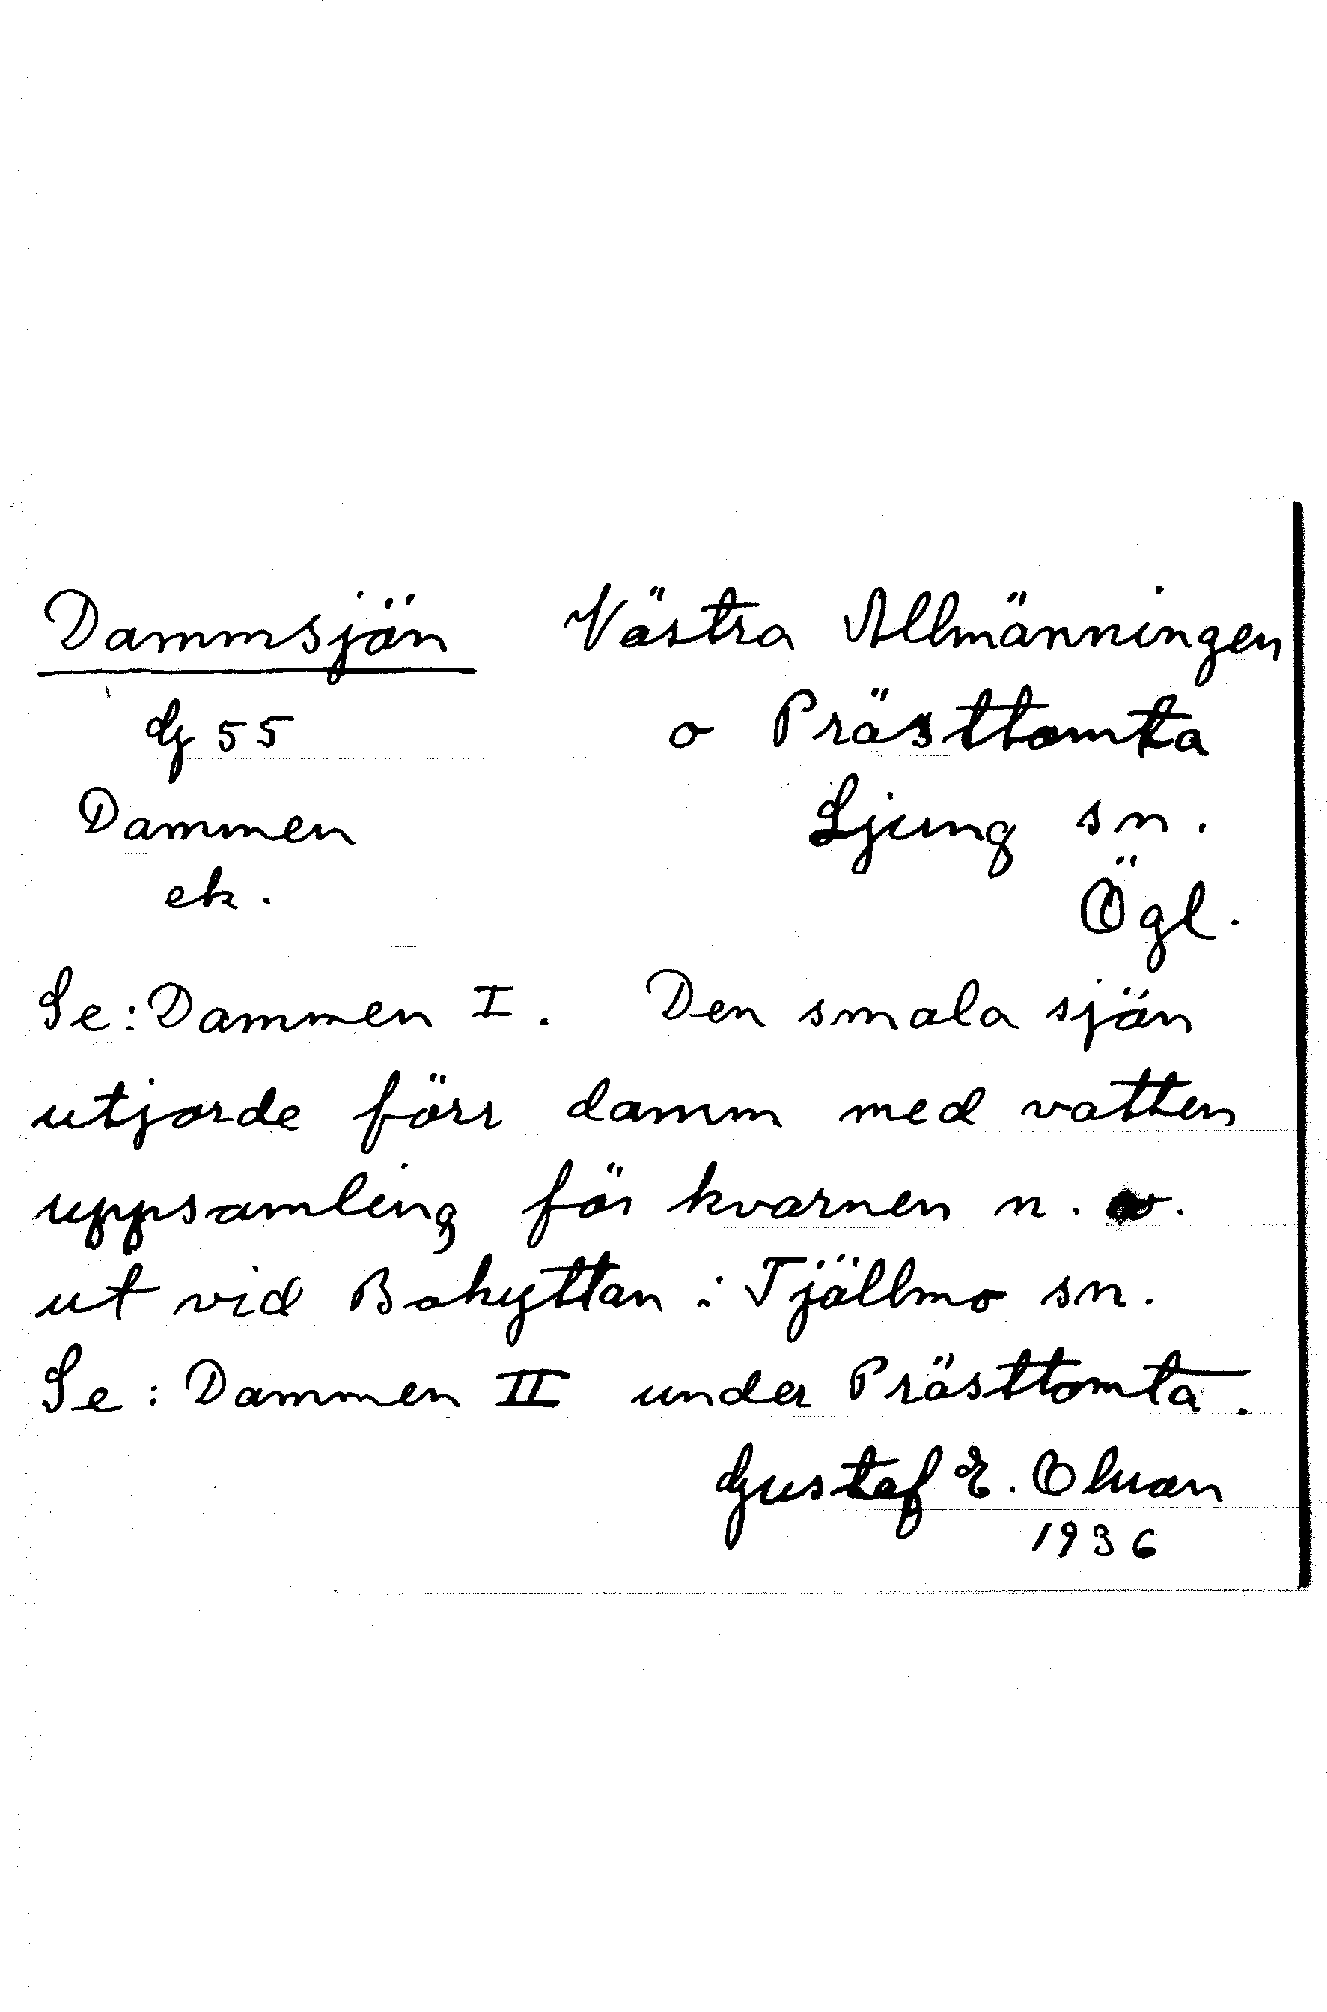 Dammsjön Västra Allmänningen
G 55 o Prästtomta
Dammen Ljung sn.
ek. Ögl.
Se: Dammen I. Den smala sjön
utjorde förr damm med vatten
uppsamling för kvarnen n. o.
ut vid Bohyttan i Tjällmo sn.
Se: Dammen II under Prästtomta.
Gustaf E. Olsson
1936